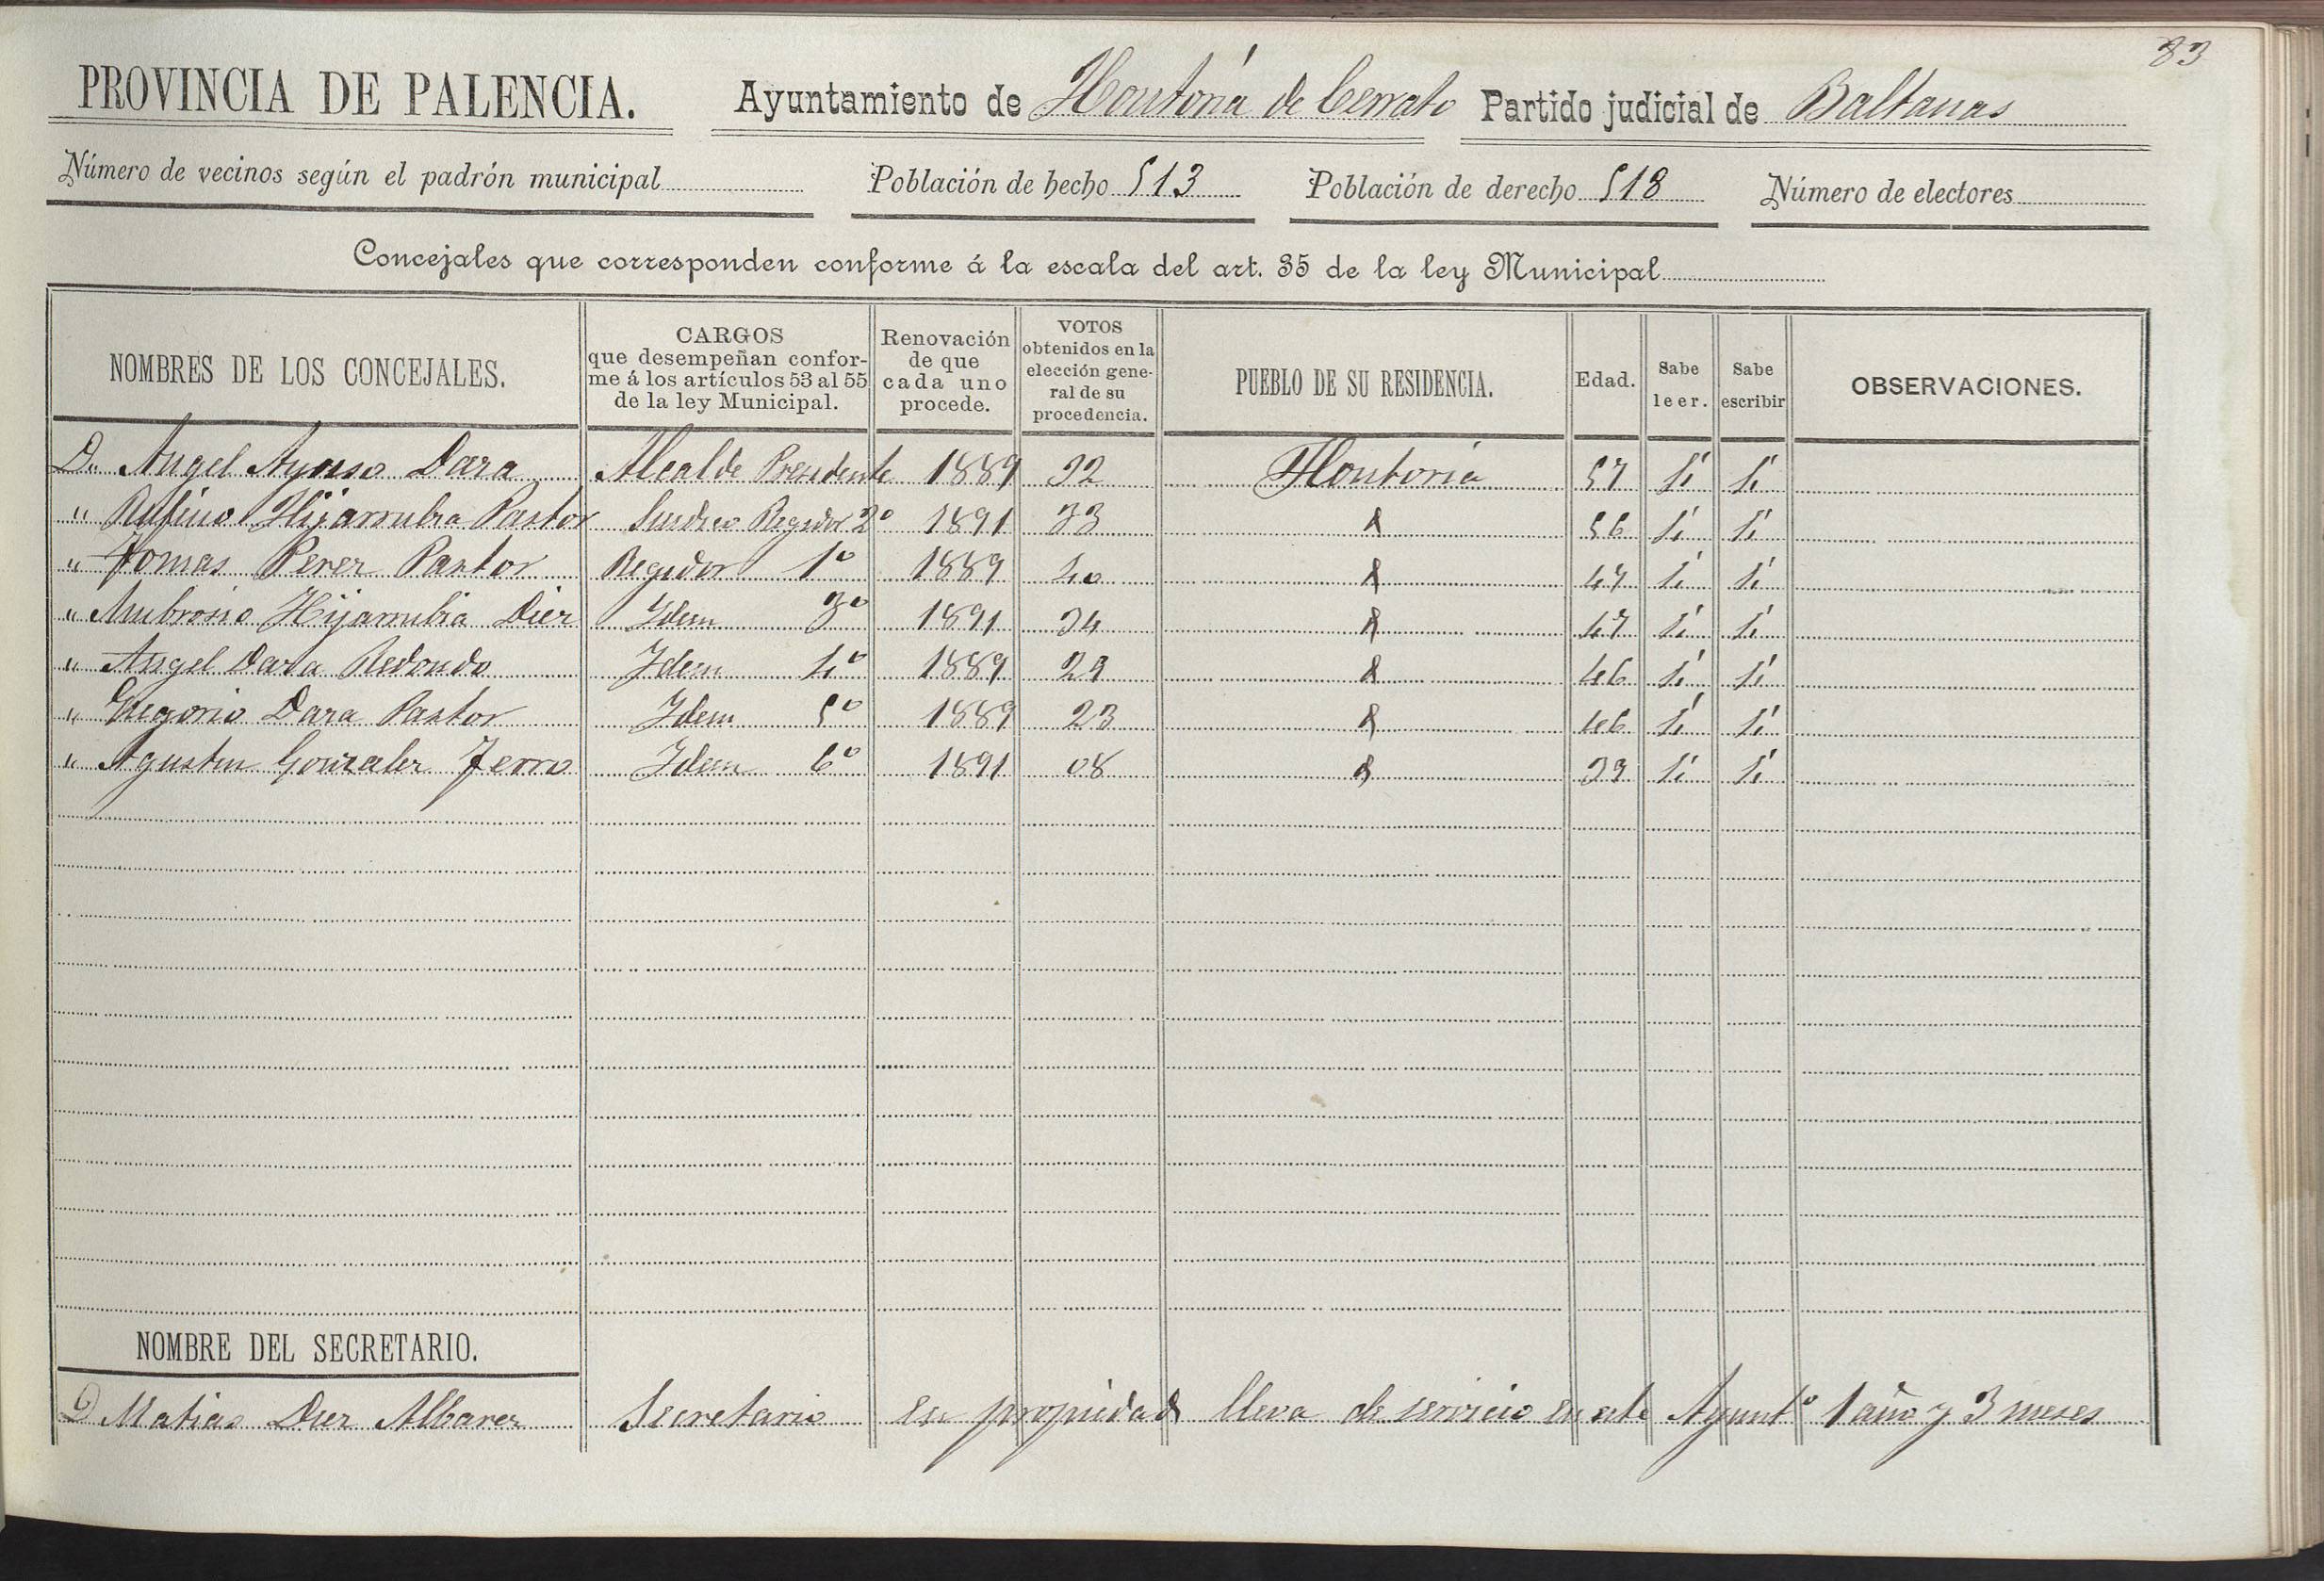 83
PROVINCIA DE PALENCIA. Ayuntamiento de Hontoria de Cerrato Partido judicial de Baltanas
Número de vecinos según el padrón municipal Población de hecho 513 Población de derecho 518 Número de electores
Concejales que corresponden conforme á la escala del art. 35 de la ley Municipal
NOMBRES DE LOS CONCEJALES.
CARGOS
que desempeñan confor-
me á los artículos 53 al 55
de la ley Municipal.
Renovación
de que
cada uno
procede.
VOTOS
obtenidos en la
elección gene-
ral de su
procedencia.
PUEBLO DE SU RESIDENCIA.
Edad.
Sabe
leer.
Sabe
escribir
OBSERVACIONES.
D. Angel Ayuso Dara Alcalde Presidente 1889 32 Hontoria 57 Si Si
" Rufino Hijarrubia Pastor Sindico Regidor 2º 1891 33 56 Si Si
" Tomas Perez Pastor Regidor 1º 1889 40 47 Si Si
" Ambrosio Hijarrubia Diez Idem 3º 1891 34 47 Si Si
" Angel Dara Redondo Idem 4º 1889 29 46 Si Si
" Gregorio Dara Pastor Idem 5º 1889 23 46 Si Si
" Agustin Gonzalez Ferro Idem 6º 1891 08 39 Si Si
NOMBRE DEL SECRETARIO.
D Matias Diez Albarez Secretario en propiedad lleva de servicio en este Ayuntº 1 año y 3 meses